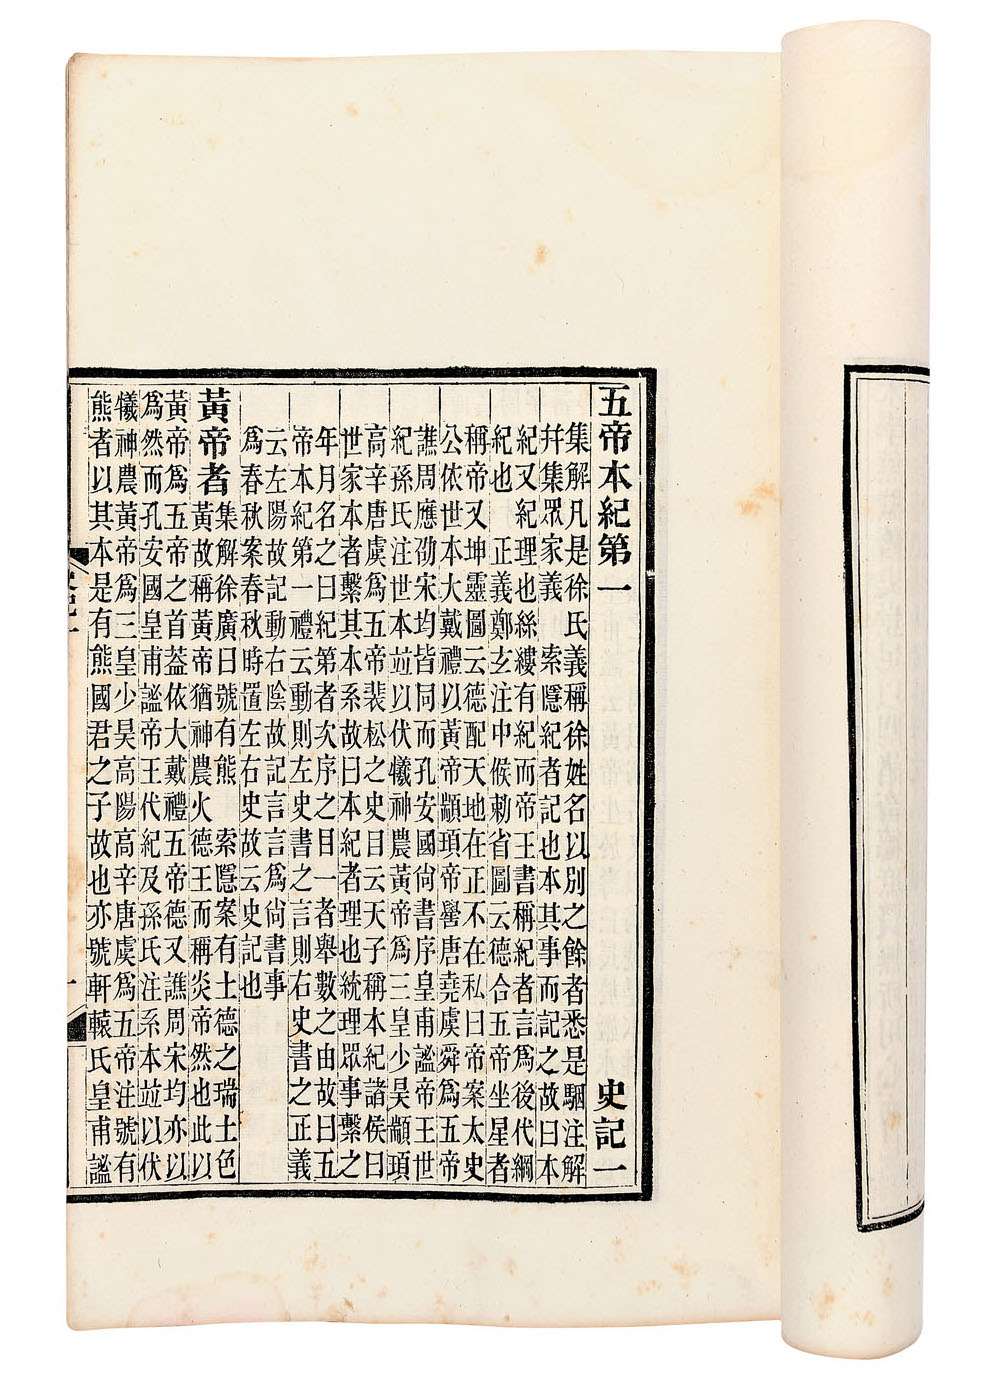 五帝本紀第一 史記一
集解凡是徐氏義稱徐姓名以別之餘者悉是駰注解
幷集眾家義 索隱紀者記也本其事而記之故曰本
紀又紀理也絲縷有紀而帝王書稱紀者言爲後代綱
紀也 正義鄭玄注中候勑省圖云德合五帝坐星者
稱帝又坤靈圖云德配天地在正不在私曰帝案太史
公依世本大戴禮以黃帝顓頊帝嚳唐堯虞舜爲五帝
譙周應劭宋均皆同而孔安國尙書序皇甫謐帝王世
紀孫氏注世本竝以伏犧神農黃帝爲三皇少昊顓頊
高辛唐虞爲五帝裴松之史目云天子稱本紀諸侯曰
世家本者繫其本系故曰本紀者理也統理眾事繫之
年月名之曰紀第者次序之目一者舉數之由故曰五
帝本紀第一禮云動則左史書之言則右史書之正義
云左陽故記動右陰故記言言爲尙書事
爲春秋案春秋時置左右史故云史記也
黃帝者
集解徐廣曰號有熊 索隱案有土德之瑞土色
黃故稱黃帝猶神農火德王而稱炎帝然也此以
黃帝爲五帝之首葢依大戴禮五帝德又譙周宋均亦以
爲然而孔安國皇甫謐帝王代紀及孫氏注系本竝以伏
犧神農黃帝爲三皇少昊高陽高辛唐虞爲五帝注號有
熊者以其本是有熊國君之子故也亦號軒轅氏皇甫謐